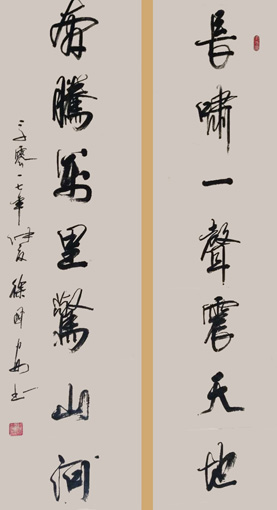 長嘯一聲震天地
奔騰萬里驚山河
二零一七年仲夏徐
书